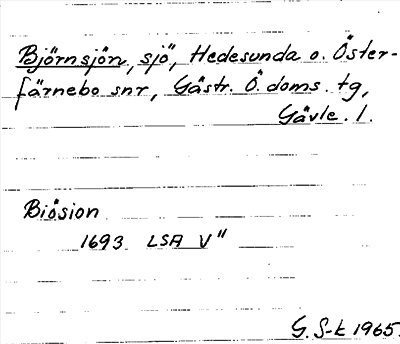 Björnsjön, sjö, Hedesunda o. Öster-
färnebo snr, Gästr. Ö. doms. tg,
Gävle. l.
Biösion
1693 LSA V"
G. S-k 1965.